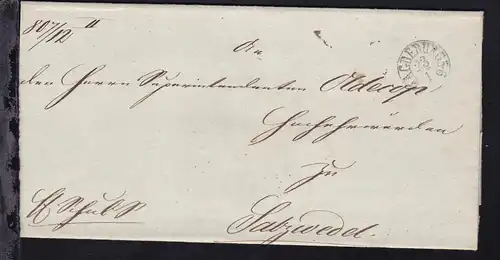 807/12 II
An
den Herrn Superintendenten Oldecop
Hochehrwürden
zu
H Schul S.
Salzwedel.
MAGDEBURG
23
1